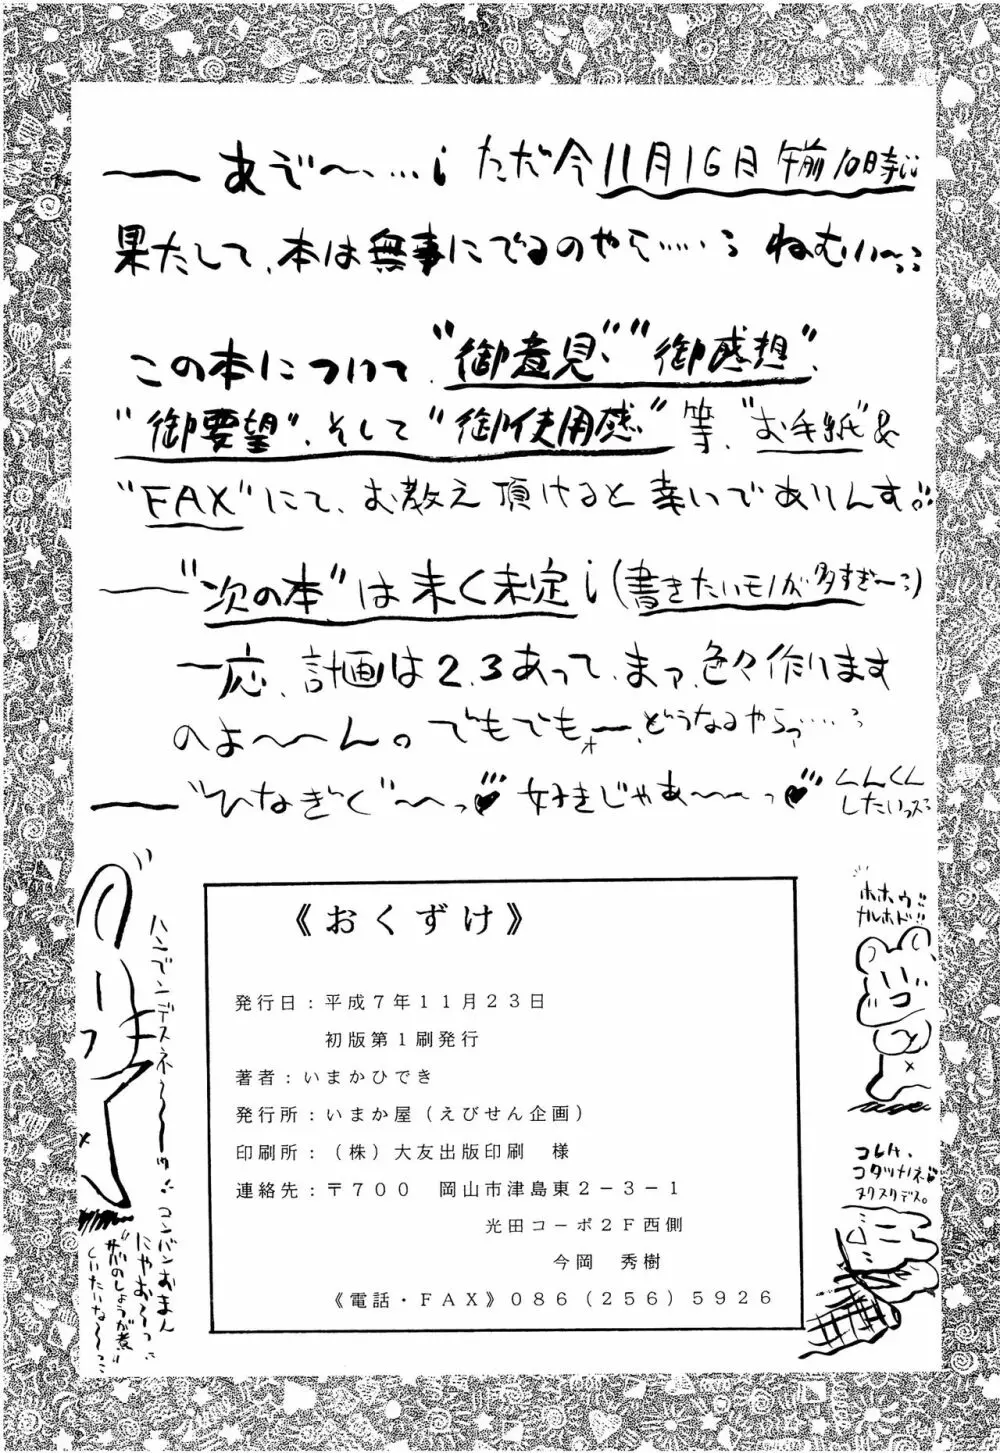 あぞ〜、…! ただ今11月16日午前10時!!
果たして、本は無事にでるのやら……? ねむい〜
この本について、"御意見"、"御感想"、
"御要望"、そして"御使用感"等、"お手紙"&
"FAX"にて、お教え頂けると幸いでありんす。
"次の本"は未く未定!(書きたいモノが多すぎ〜)
一応、計画は2、3あって、まァ、色々作ります
のよ〜〜ん。でもでもォー、どうなるやらっ……?
"ひなぎく"〜っ♥ 好きじゃあ〜〜っ♥ くんくん
したいっス
ホホウ!!
ナルホド!!
ハンデンデスネ〜〜
コンバンおまん
にゃお〜っ
"サバのしょうが煮"
しいたいな〜っ
コレハ、
コタツナノネ♥
ヌクヌクデス。
《おくずけ》
発行日:平成7年11月23日
初版第1刷発行
著者:いまかひでき
発行所:いまか屋(えびせん企画)
印刷所:(株)大友出版印刷 様
連絡先:〒700 岡山市津島東2-3-1
光田コーポ2F西側
今岡 秀樹
《電話・FAX》086(256)5926